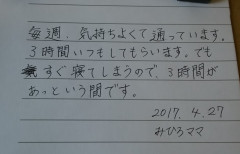 毎週、気持ちよくて通っています。
3時間いつもしてもらいます。でも
すぐ寝てしまうので、3時間が
あっという間です。
2017.4.27
みひろママ